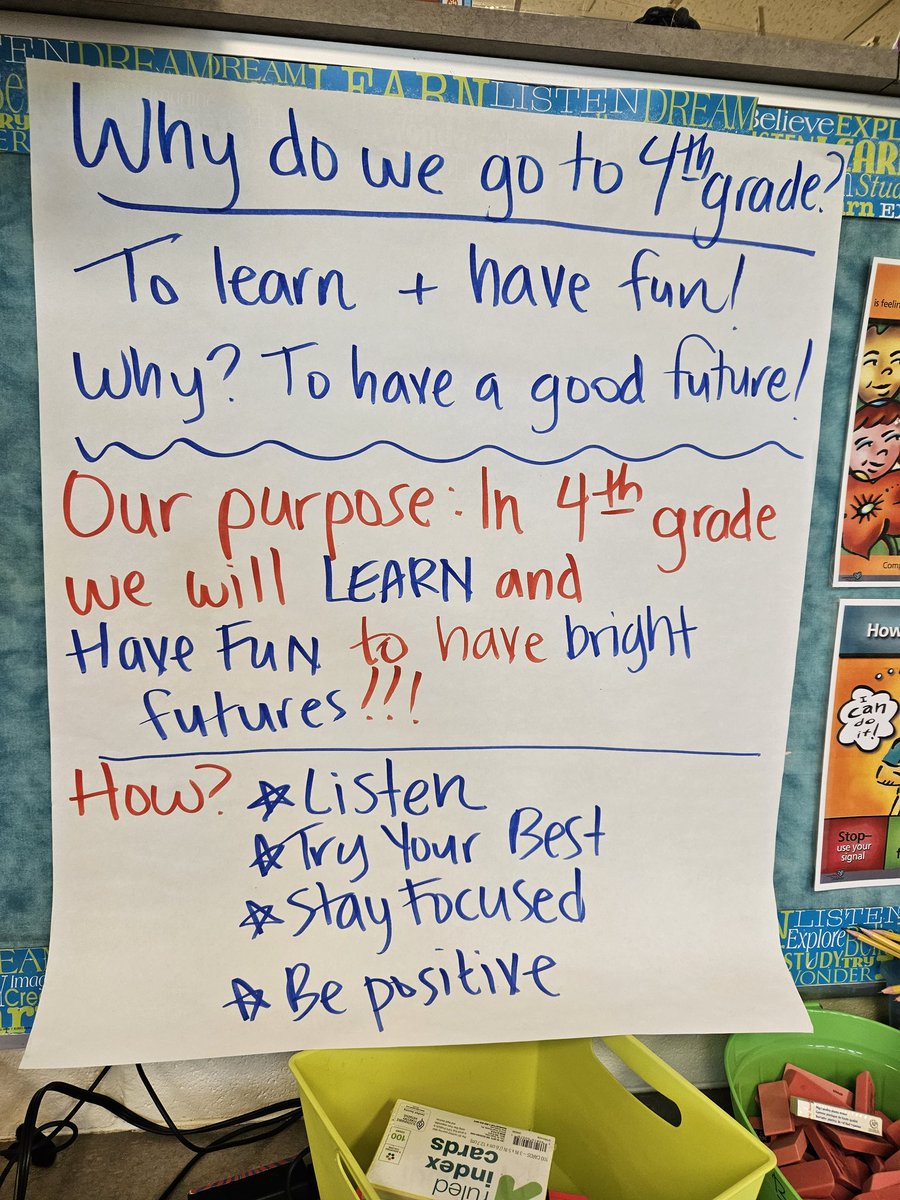 LISTEN DREAM DREAM LEARN LISTEN DREAM
Believe EXPL
Why do we go to 4th grade?
To learn + have fun!
Why? To have a good future!
Our purpose: In 4th grade
we will LEARN and
Have FUN to have bright
futures!!!
How? ☆ Listen
☆ Try Your Best
☆ Stay Focused
☆ Be positive
is feelin
How
I
can
do
it!
Stop—
use your
signal
LISTEN
Explore
STUDY TRY
WONDER
100
ruled
index
cards